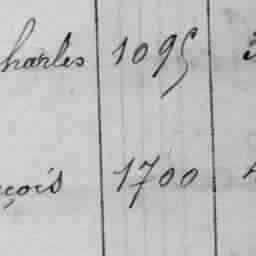 harles 1095
çois 1700